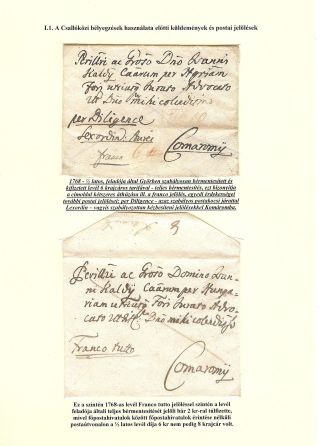 I.1. A Csallóközi bélyegzések használata előtti küldemények és postai jelölések
Perillri ac Groso Dno Ioannis
Haldÿ Caarum per
Fori Jurato Advocato
Ut Dno mihi colendissimo
per Diligence
Lexordin:
Franco 6
Comaromÿ
1768 - ½ latos, feladója által Győrben szabályosan bérmentesített és
kifizetett levél 6 krajcáros tarifával - teljes bérmentesítés, ezt bizonyítja
a címoldal kétszeres áthúzása ill. a franco jelölés, egyedi érdekességei
további postai jelölései: per Diligence - azaz szabályos postakocsi járattal
Lexordin – vagyis szabályozottan kézbesítetni jelölésekkel Komáromba.
Perillri ac Groso Domino Ioan-
ni Haldÿ Caarum per Hunga-
riam Fori Jurato Advo-
cato Dno mihi
Franco tutto
Comaromÿ
Ez a szintén 1768-as levél Franco tutto jelöléssel szintén a levél
feladója általi teljes bérmentesítését jelöli bár 2 kr-ral túlfizette,
mivel főpostahivatalok között főpostahivatalok érintése nélküli
postaútvonalon a ½ latos levél díja 6 kr nem pedig 8 krajcár volt.